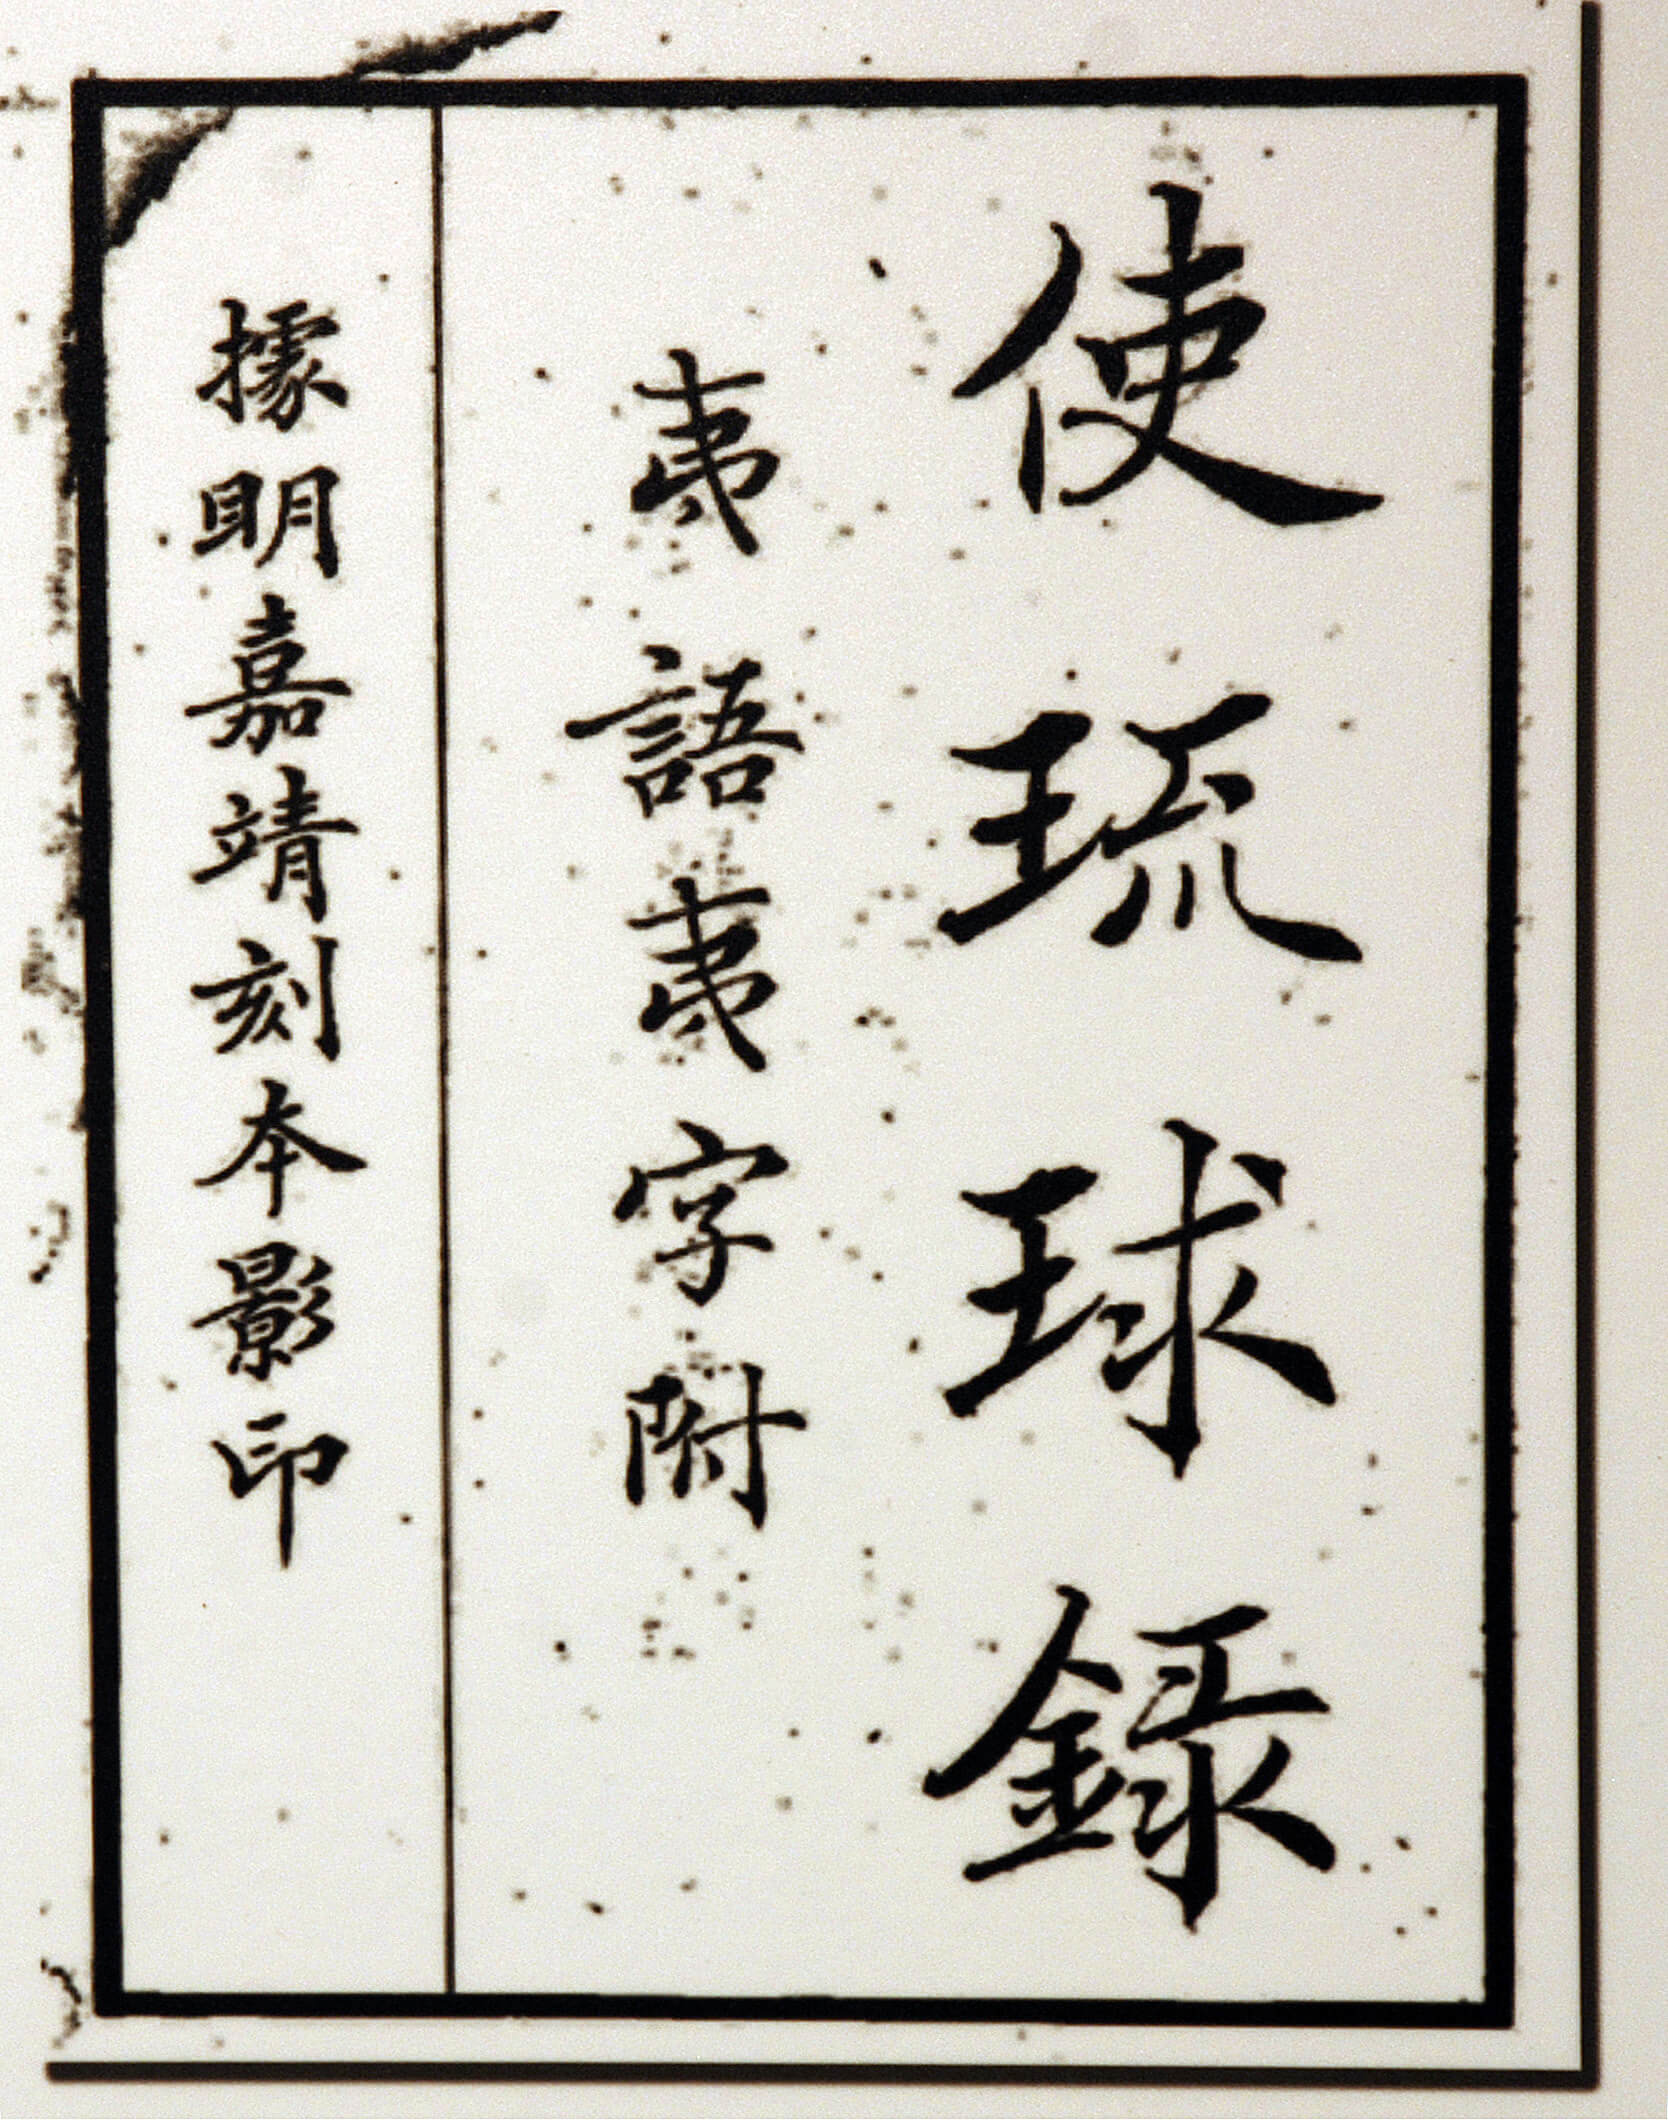 使琉球録
夷語夷字附
據明嘉靖刻本影印